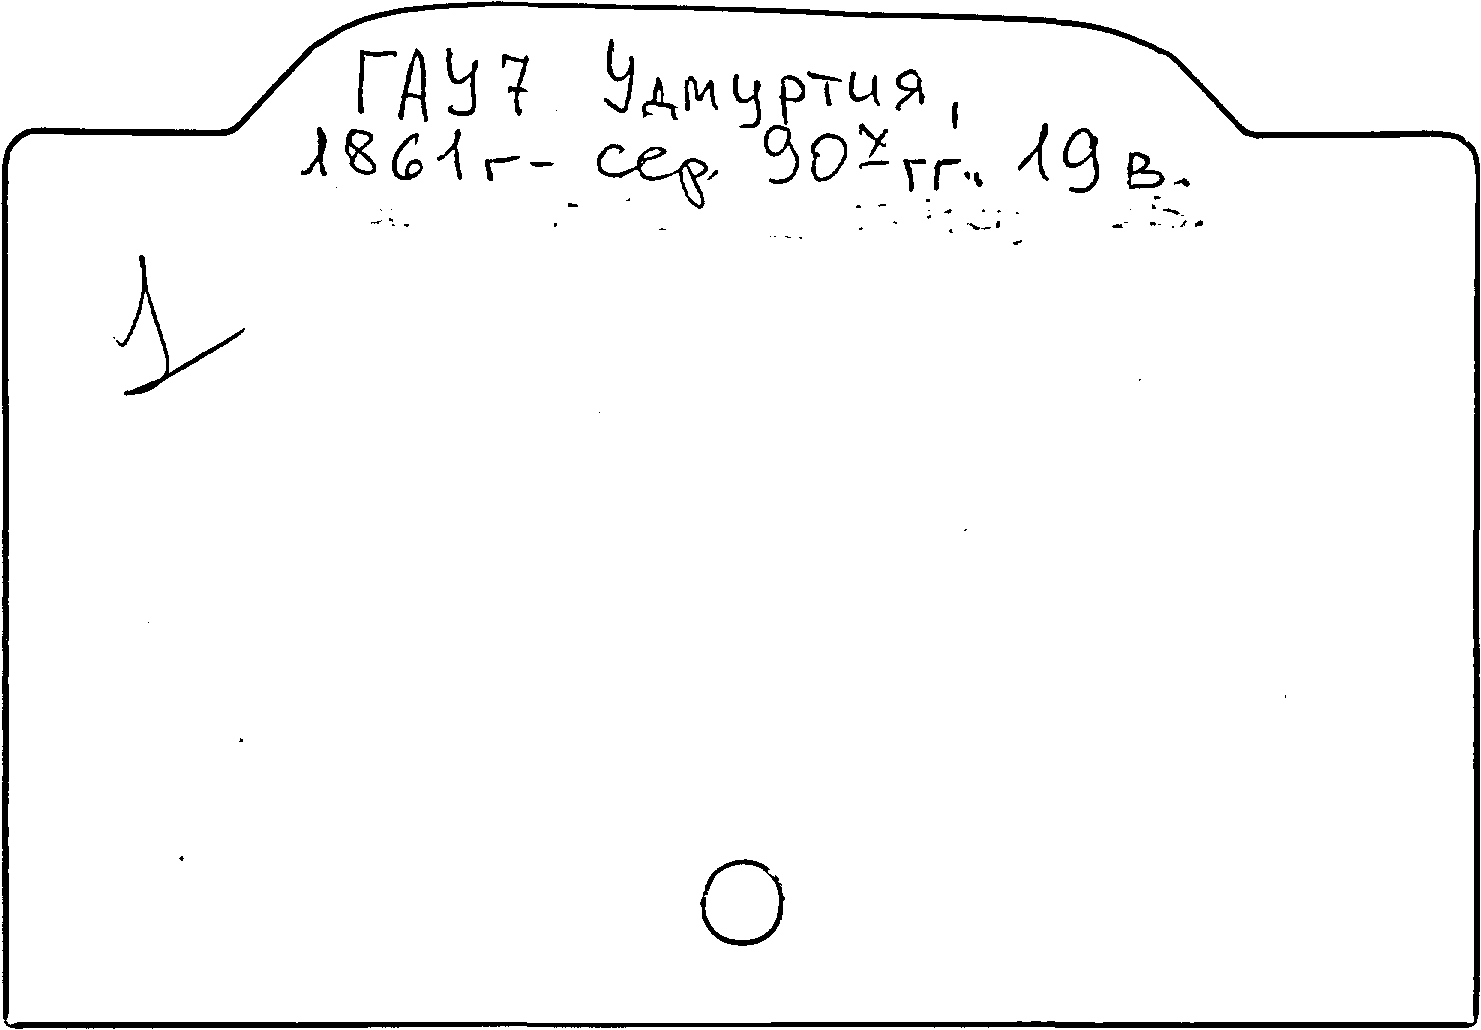 ГАУ7 Удмуртия,
1861г- сер. 90х гг. 19 в.
1